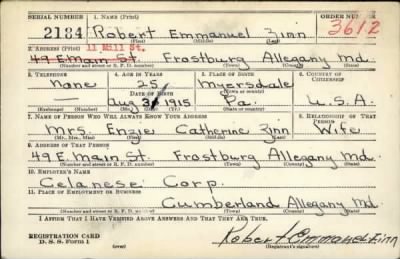 SERIAL NUMBER 1. NAME (Print) ORDER NUMBER
2184 Robert Emmanuel Zinn 3612
(First) (Middle) (Last)
2. ADDRESS (Print) 11 Mill St.
49 E. Main St. Frostburg Allegany Md.
(Number and street or R. F. D. number) (Town) (County) (State)
3. TELEPHONE 4. AGE IN YEARS 5. PLACE OF BIRTH 6. COUNTRY OF CITIZENSHIP
None 25 Myersdale
DATE OF BIRTH (Town or county)
Aug 31 1915 Pa. U.S.A.
(Exchange) (Number) (Mo.) (Day) (Yr.) (State or country)
7. NAME OF PERSON WHO WILL ALWAYS KNOW YOUR ADDRESS 8. RELATIONSHIP OF THAT PERSON
Mrs. Enzie Catherine Zinn Wife
(Mr., Mrs., Miss) (First) (Middle) (Last)
9. ADDRESS OF THAT PERSON
49 E. Main St. Frostburg Allegany Md.
(Number and street or R. F. D. number) (Town) (County) (State)
10. EMPLOYER'S NAME
Celanese Corp.
11. PLACE OF EMPLOYMENT OR BUSINESS
Cumberland Allegany Md.
(Number and street or R. F. D. number) (Town) (County) (State)
I AFFIRM THAT I HAVE VERIFIED ABOVE ANSWERS AND THAT THEY ARE TRUE.
REGISTRATION CARD
D. S. S. Form 1 (over) Robert Emmanuel Zinn
(Registrant's signature)